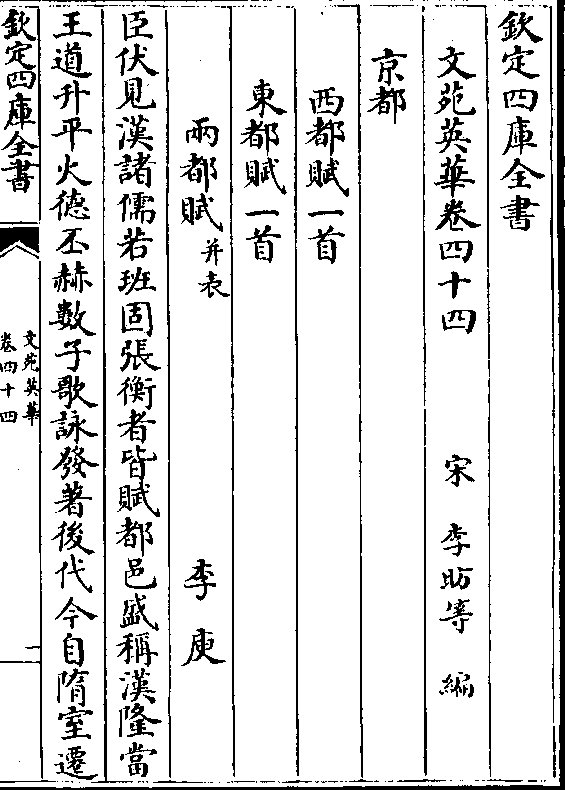 欽定四庫全書
文苑英華卷四十四 宋 李昉等 編
京都
西都賦一首
東都賦一首
兩都賦并表 李庾
臣伏見漢諸儒若班固張衡者皆賦都邑盛稱漢隆當
王道升平火德丕赫數子歌詠發著後代今自隋室遷
欽定四庫全書
文苑英華
卷四十四
一